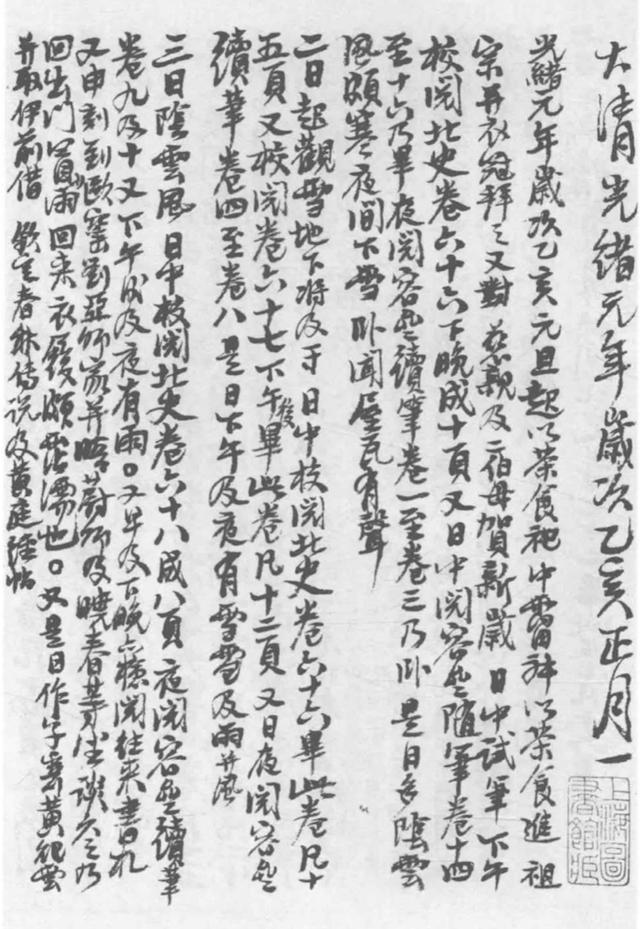 大清光緒元年歲次乙亥正月一
光緒元年歲次乙亥元旦起以茶食祀中霤神以茶食進 祖
宗并衣冠拜之又對 慈親及二伯母賀新歲 日中試筆下午
校閱北史卷六十六下晚成十頁又日中閱容齋隨筆卷十四
至十六乃畢夜閱容齋續筆卷一至卷三乃臥 是日多陰雲
風頗寒夜間下雪 臥聞屋瓦有聲
二日起觀雪地下將及寸 日中校閱北史卷六十六畢此卷凡十
五頁又校閱卷六十七下午後畢此卷凡十二頁 又日夜閱容齋
續筆卷四至卷八 是日下午及夜有雪雪及雨并風
三日陰雲風 日中校閱北史卷六十八成八頁 夜閱容齋續筆
卷九及十 又下午間及夜有雨。又早及下晚檢閱往來書札
又申刻到歐窯劉亞師家并晤蔚師及曉春等坐談久之乃
回出門冒雨回來衣履頗霑濡也。又是日作字寄黃
并取伊前借 欽定春秋傳說及黃庭經帖
上海圖書館藏